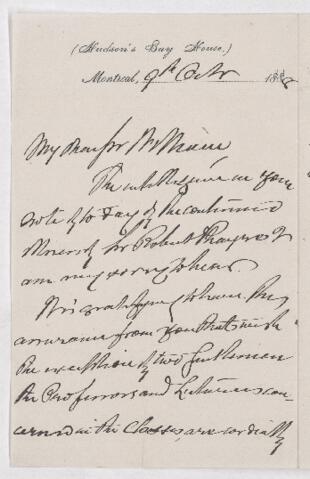 (Hudson's Bay House.)
Montreal, 9th Octr 188
My Dear Sir
The intelligence in your
note of to day of the continued
illness of Mr Robert I
am very sorry to hear.
It is gratifying to have the
assurance from you that with
the exception of two Gentlemen
the Professors and Lecturers con-
cerned in the Classes, are cordially